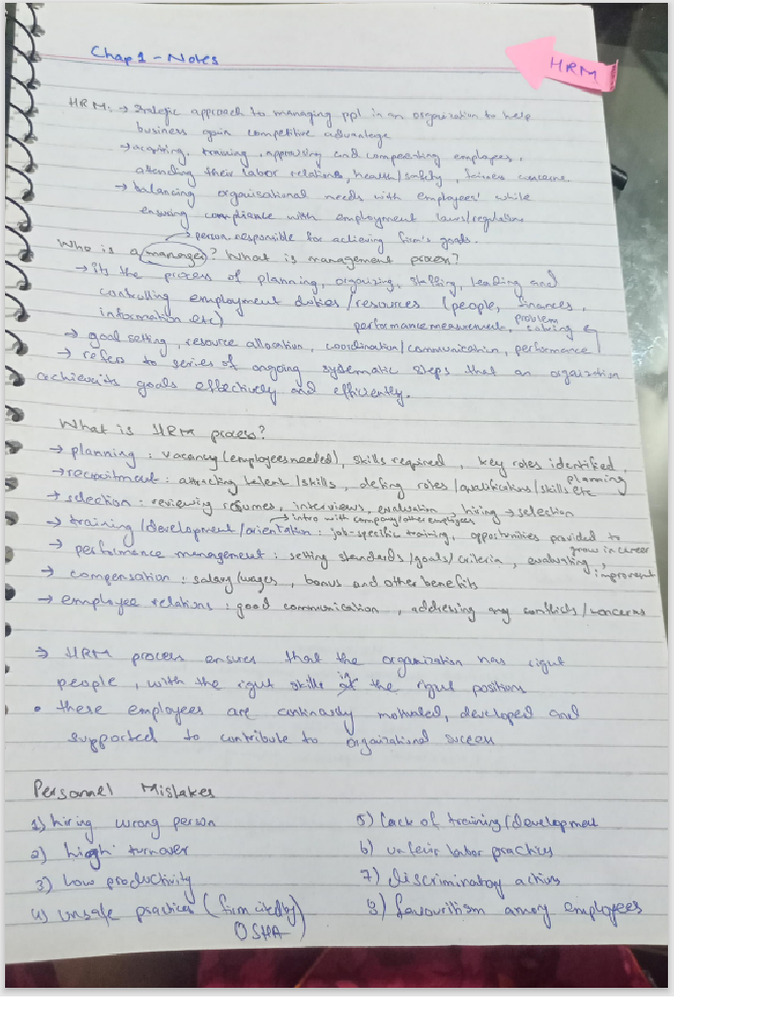 Chap 1 - Notes
HRM
HRM: → strategic approach to managing ppl in an organization to help
business gain competitive advantage
→ acquiring, training, appraising and compensating employees,
attending their labor relations, health/safety, fairness concerns.
→ balancing organisational needs with employees' while
ensuring compliance with employment laws/regulations
→ person responsible for achieving firm's goals.
Who is a manager? What is management process?
→ its the process of planning, organizing, staffing, leading and
controlling employment duties/resources (people, finances,
information etc)
performance measurement, problem solving
→ goal setting, resource allocation, coordination/communication, performance
→ refers to series of ongoing systematic steps that an organization
achieves its goals effectively and efficiently.
What is HRM process?
→ planning: vacancy (employees needed), skills required, key roles identified,
→ recruitment: attracting talent/skills, defing roles/qualifications/skills etc planning
→ selection: reviewing resumes, interviews, evaluation, hiring → selection
→ intro with company/other employees
→ training/development/orientation: job-specific training, opportunities provided to
grow in career
→ performance management: setting standards/goals/criteria, evaluating,
improvement
→ compensation: salary/wages, bonus and other benefits
→ employee relations: good communication, addressing any conflicts/concerns
→ HRM process ensures that the organization has right
people, with the right skills in the right positions
• these employees are continously motivated, developed and
supported to contribute to organizational success
Personnel Mistakes
1) hiring wrong person
2) high turnover
3) low productivity
4) unsafe practices (firm cited by
OSHA)
5) lack of training/development
6) unfair labor practices
7) discriminatory actions
8) favouritism among employees